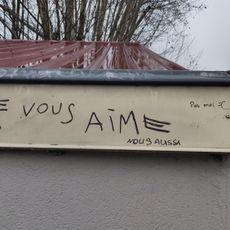 E VOUS AiME
Pas moi :(
NOUS AUSSi